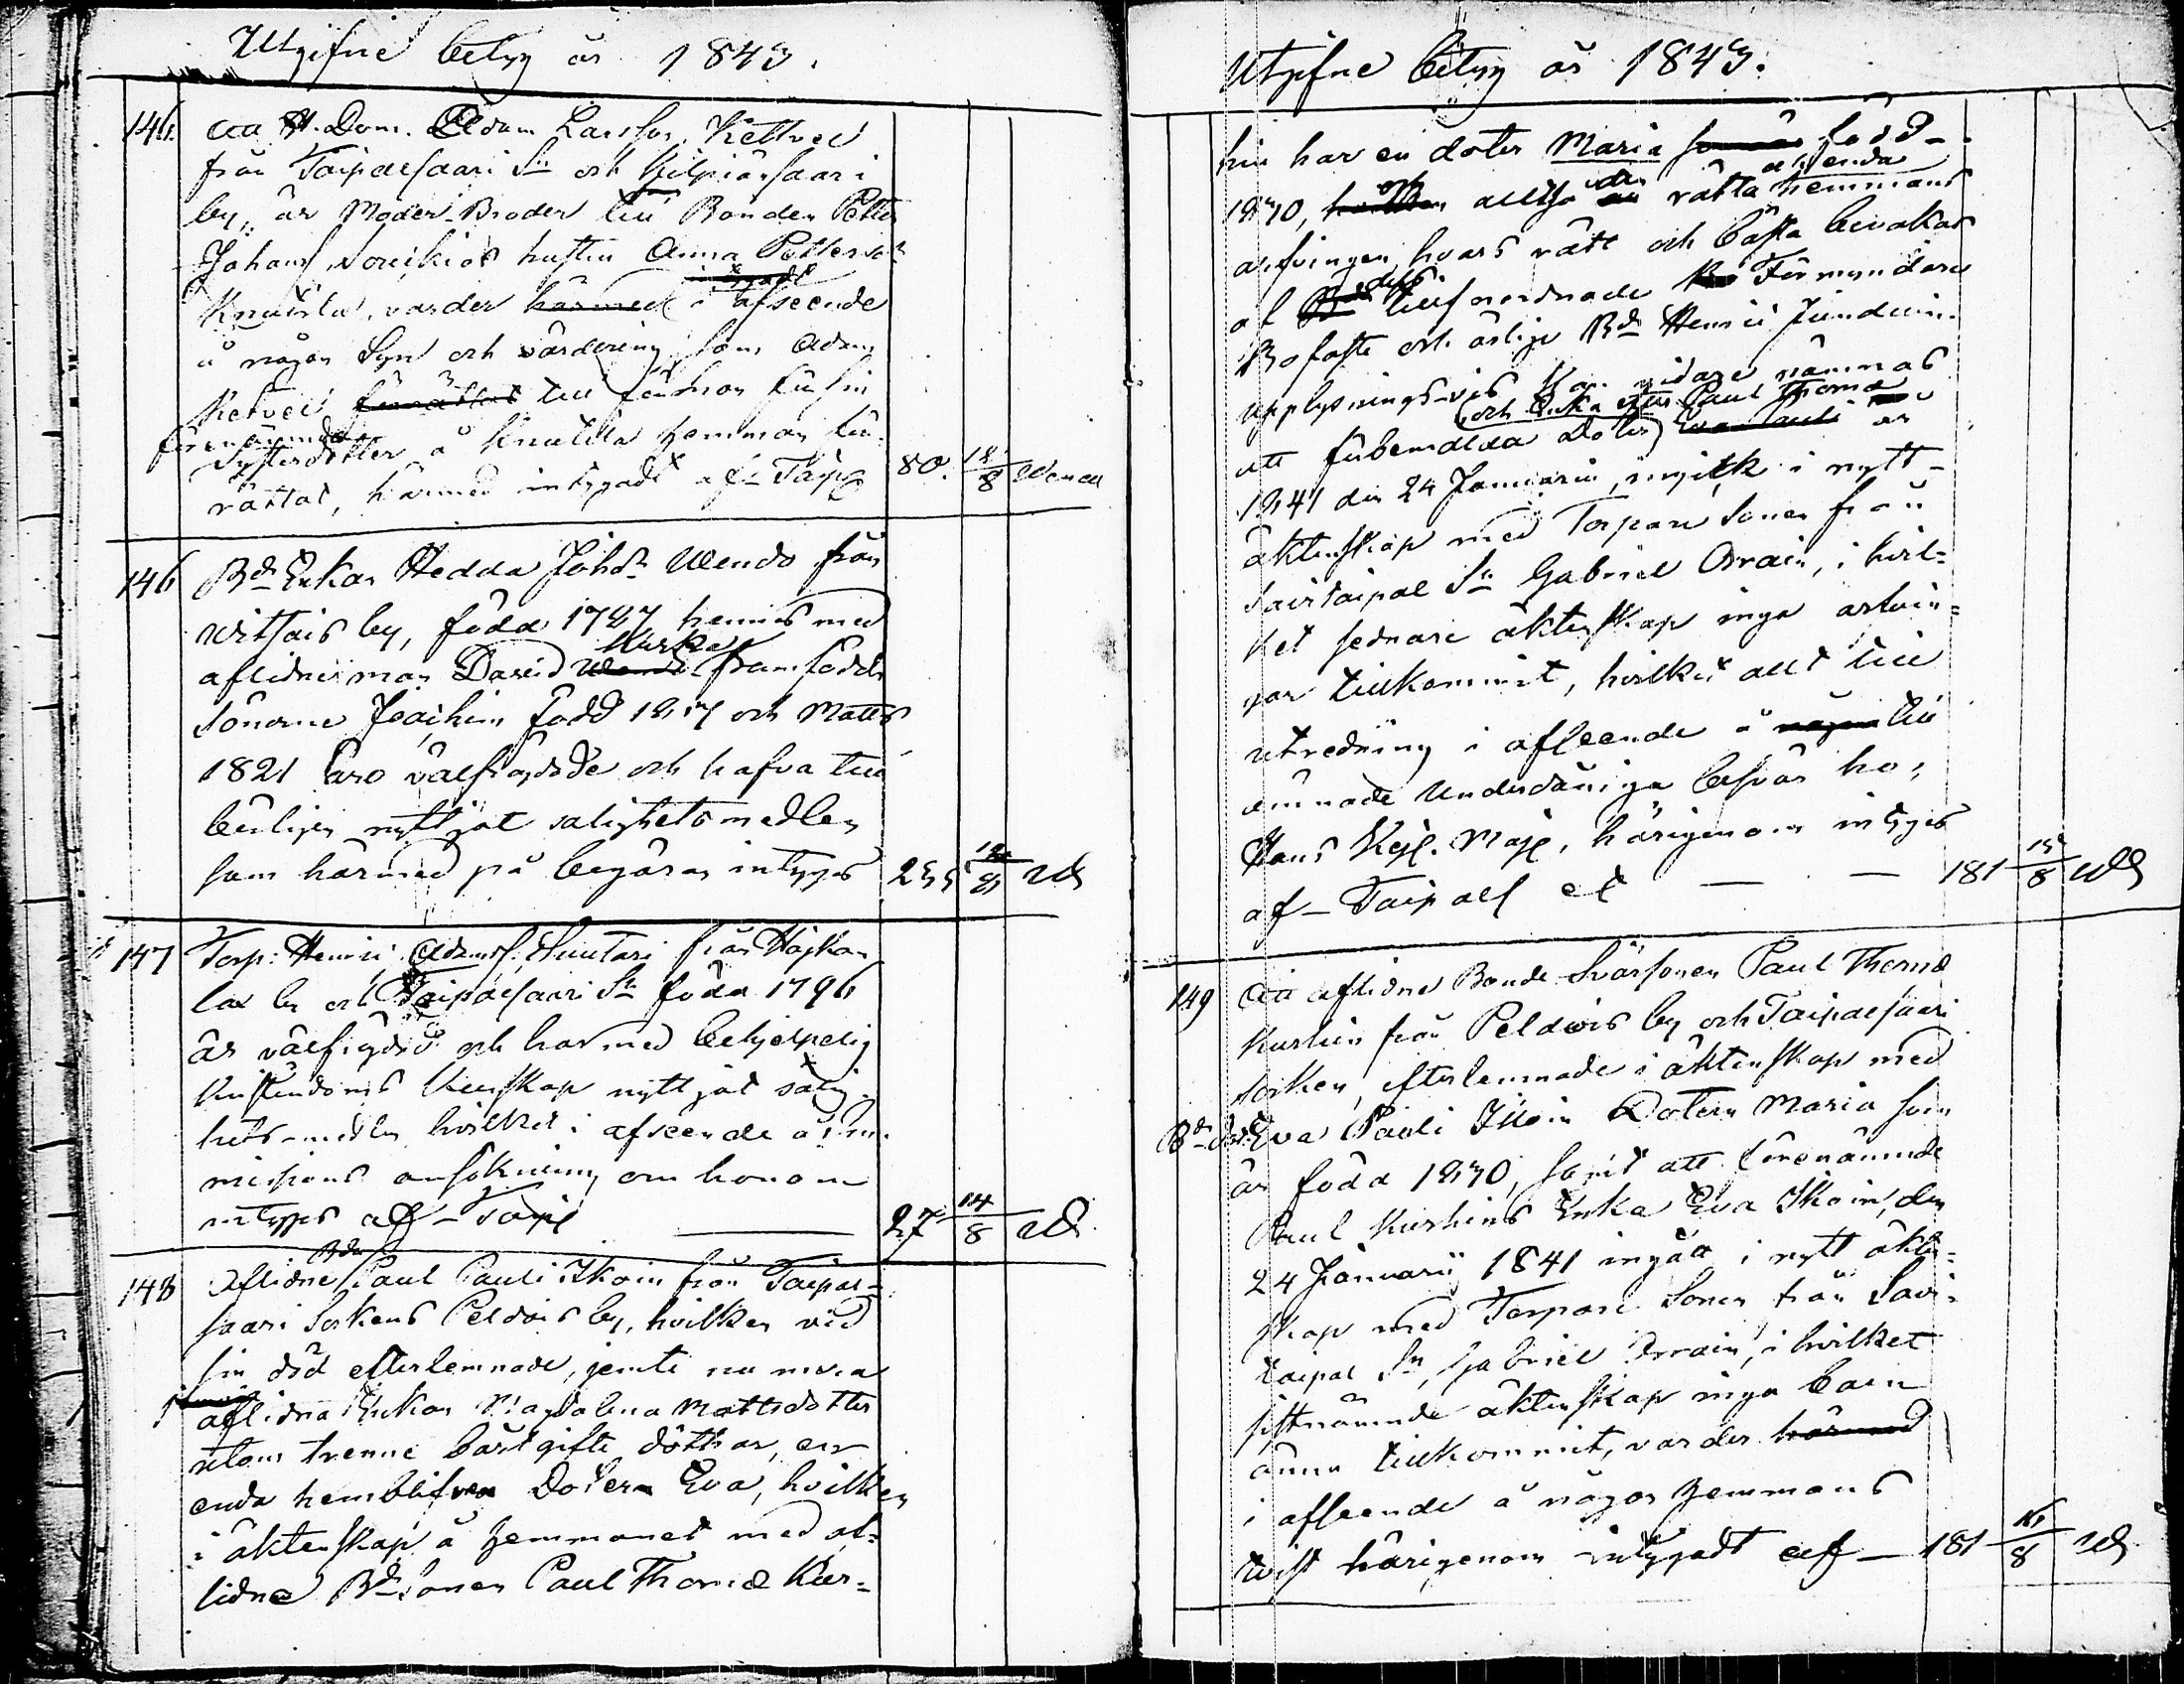 Utgifne betyg år 1843.
146. att N. Dom. Adam Larsson Kettvel
från Taipalsaari Sn och Kilpiänsaari
by, är Moder-Broder till Bonden Petter
Johans hustru Anna Pettersdr
intygadt
Knutila, varder härmed i afseende
å någon Syn och värdering som Adam
Ketvel till förmon för sin
förenämnde
Systerdotter å Knutila hemman för-
rättat, härmed intygadt af Taipl 80. 12/8
146 Bde Enkan Hedda Johdr Uendo från
Vitsais by, född 1787 hennes med
Kurko
aflidne man David framfödde
Sönerne Joachim född 1817 och Matts
1821 äro välfrägdade och hafva till
börligen nyttjat salighetsmedlen
som härmed på begäran intyges 255 12/8
147 Torp: Henric Adamss. Suutari från Haikan
lax by och Taipalsaari Sn född 1796
är välfrägdad och har med behjelpelig
kristendoms kunskap nyttjat salig-
hets-medlen hvilket i afseende å
missions ansökning om honom
intyges af Taipl — 27 14/8
Bde
148 Aflidne Paul Pauli Ikoin från Taipal-
saari Sockens Peldois by, hvilken vid
sin död efterlemnade, jemte nu mera
aflidna Enkan Magdalena Mattsdotter
utom trenne bort gifte döttrar, en
enda hemblifven Dotern Eva, hvilken
i äktenskap å hemmanet med af-
lidne Bde Sonen Paul Thomæ Kur-
Utgifne betyg år 1843.
hin har en doter Maria född
och den enda
1830, alltså rätta hemmans
arfvingen, hvars rätt och bästa bevakas
dess
af tillförordnade Förmyndare
Bofaste och ärlige Bde Henric
upplysningsvis kan vidare nämnas
och Enka efter Paul Thomæ
att förbemälda Doter Eva Pauli är
1841 den 24 Januarii, ingick i nytt
äktenskap med Torpare Sonen från
Savitaipal Sn Gabriel Orrain, i hvil-
ket sednare äktenskap inga arfvin-
gar tillkommit, hvilket allt till
utredning i afseende å någon till
ämnade Underdåniga besvär hos
Hans Kejs. Maj, härigenom intyges
af Taipals — — 181 15/8
149 Att aflidne Bonde Svärsonen Paul Thomæ
Kurhin från Peldois by och Taipalsaari
socken, efterlemnade i äktenskap med
Bde Eva Pauli Ikoin Dotern Maria som
är född 1830, samt att förenämnde
Paul Kurhins Enka Eva Ikoin, den
24 Januarii 1841 ingått i nytt äkten-
skap med Torpare Sonen från Savi-
taipal Sn, Gabriel Orrain, i hvilket
sistnämnde äktenskap inga barn
ännu tillkommit, varder härmed
i afseende å någon hemmans
tvist härigenom intygadt af — 181 16/8